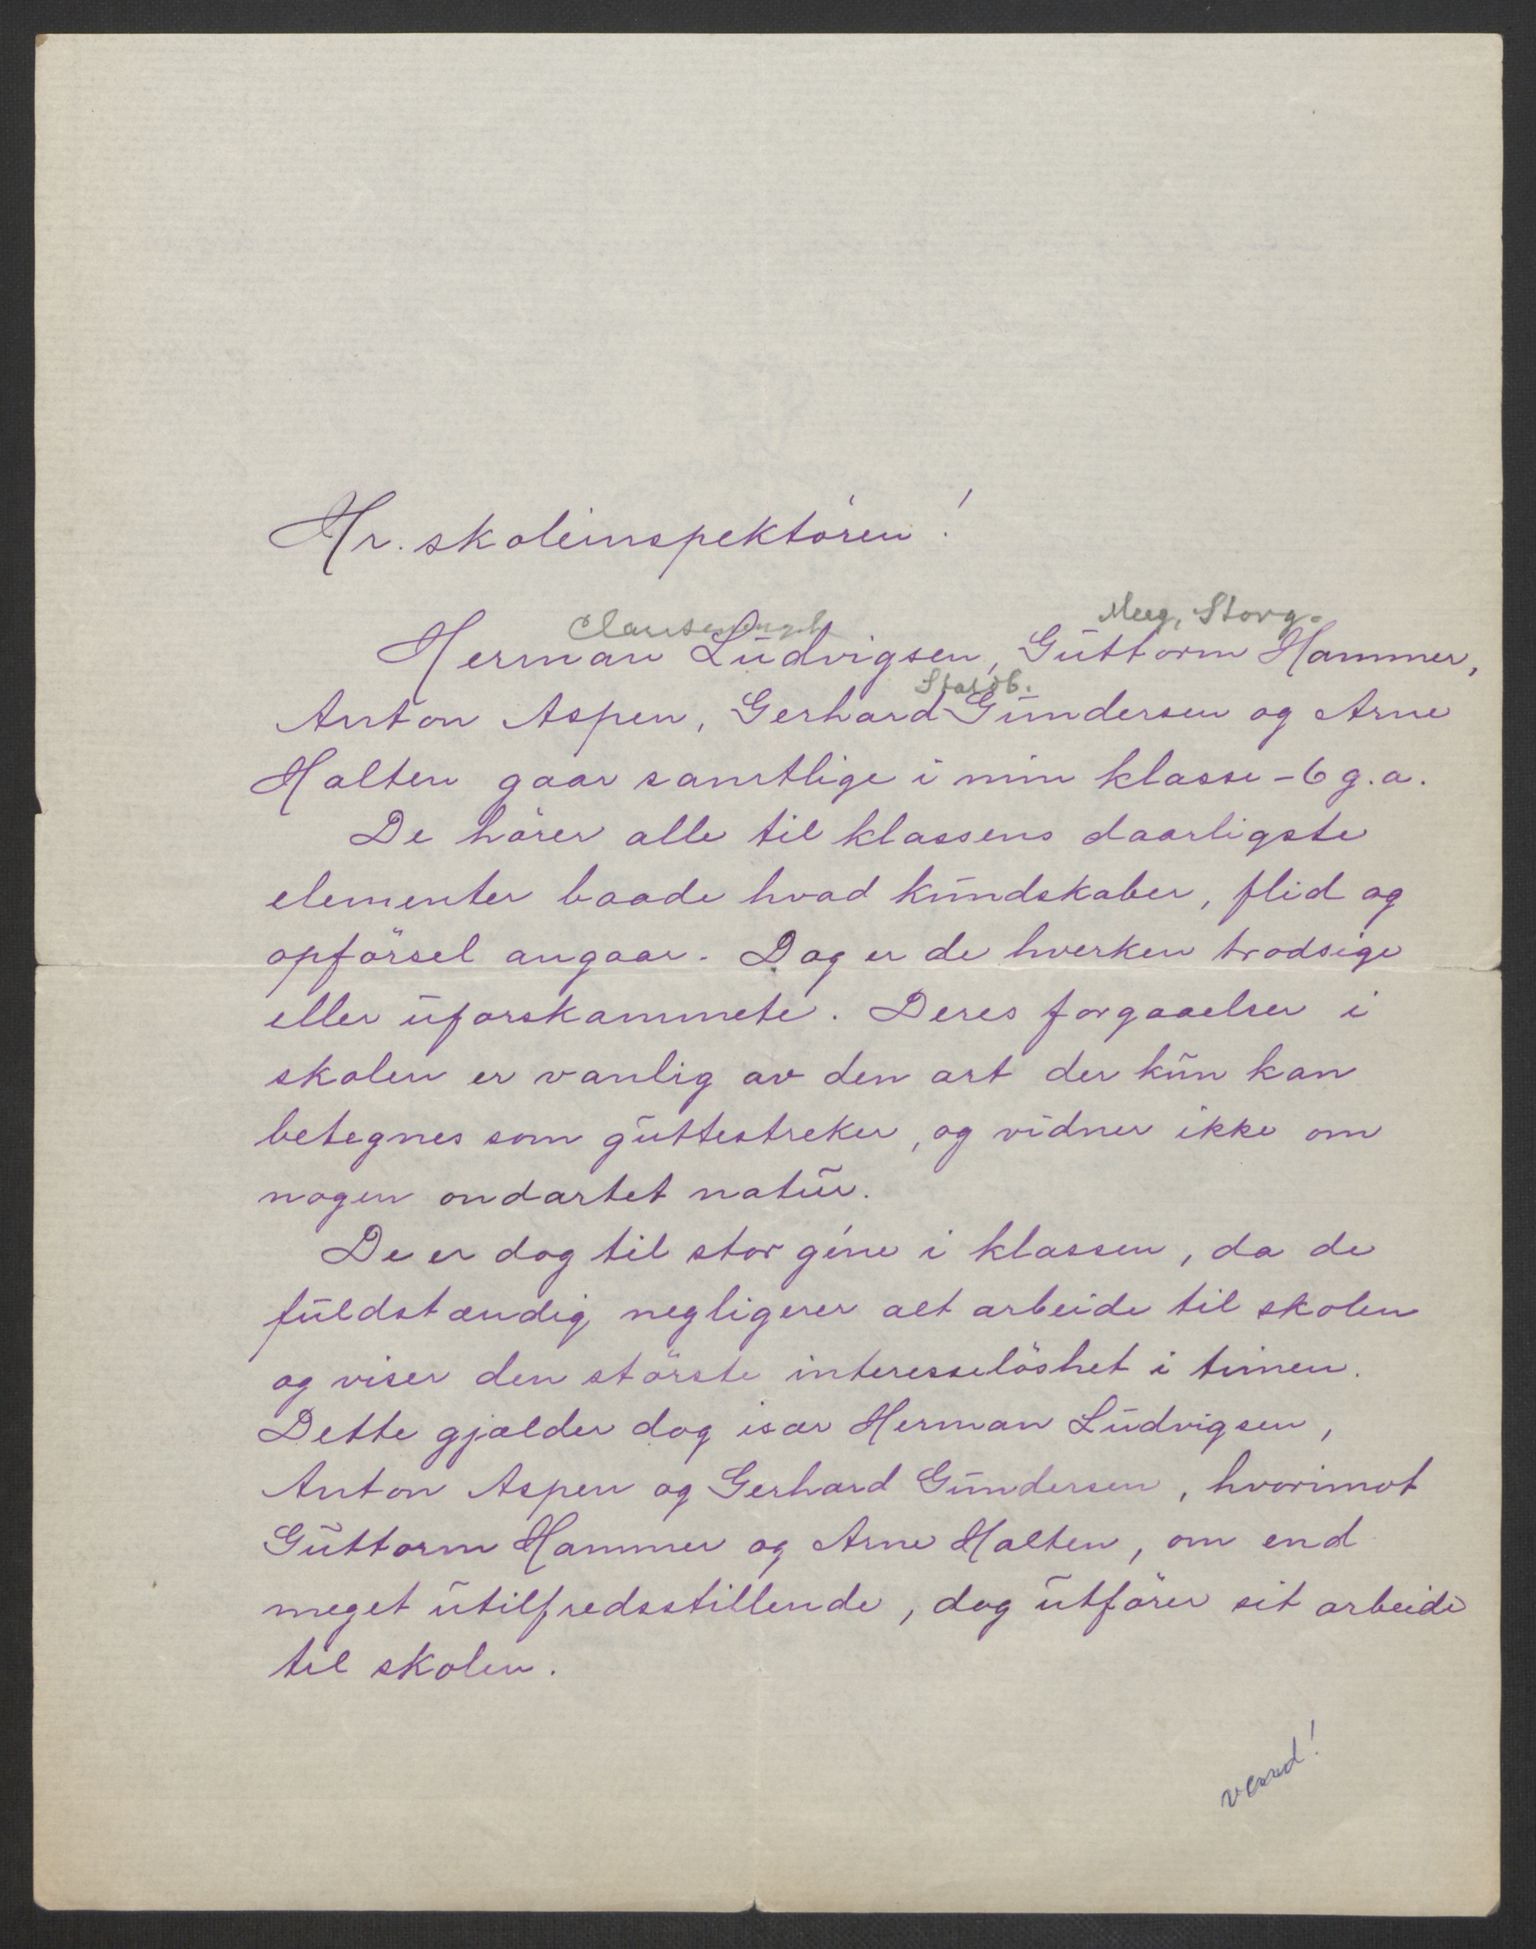 Hr. skoleinspektören!
Meeg, Storg.
Herman Ludvigsen, Guttorm Hammer,
Anton Aspen, Gerhard Gundersen og Arne
Halten gaar samtlige i min klasse - 6 g. a.
De hörer alle til klassens daarligste
elementer baade hvad kundskaber, flid og
opförsel angaar. Dog er de hverken trodsige
eller uforskammete. Deres forgaaelser i
skolen er vanlig av den art der kun kan
betegnes som guttestreker, og vidner ikke om
nogen ondartet natur.
De er dog til stor géne i klassen, da de
fuldstændig negligerer alt arbeide til skolen
og viser den störste interesselöshet i timen.
Dette gjælder dog især Herman Ludvigsen,
Anton Aspen og Gerhard Gundersen, hvorimot
Guttorm Hammer og Arne Halten, om end
meget utilfredsstillende, dog utförer sit arbeide
til skolen.
vend!